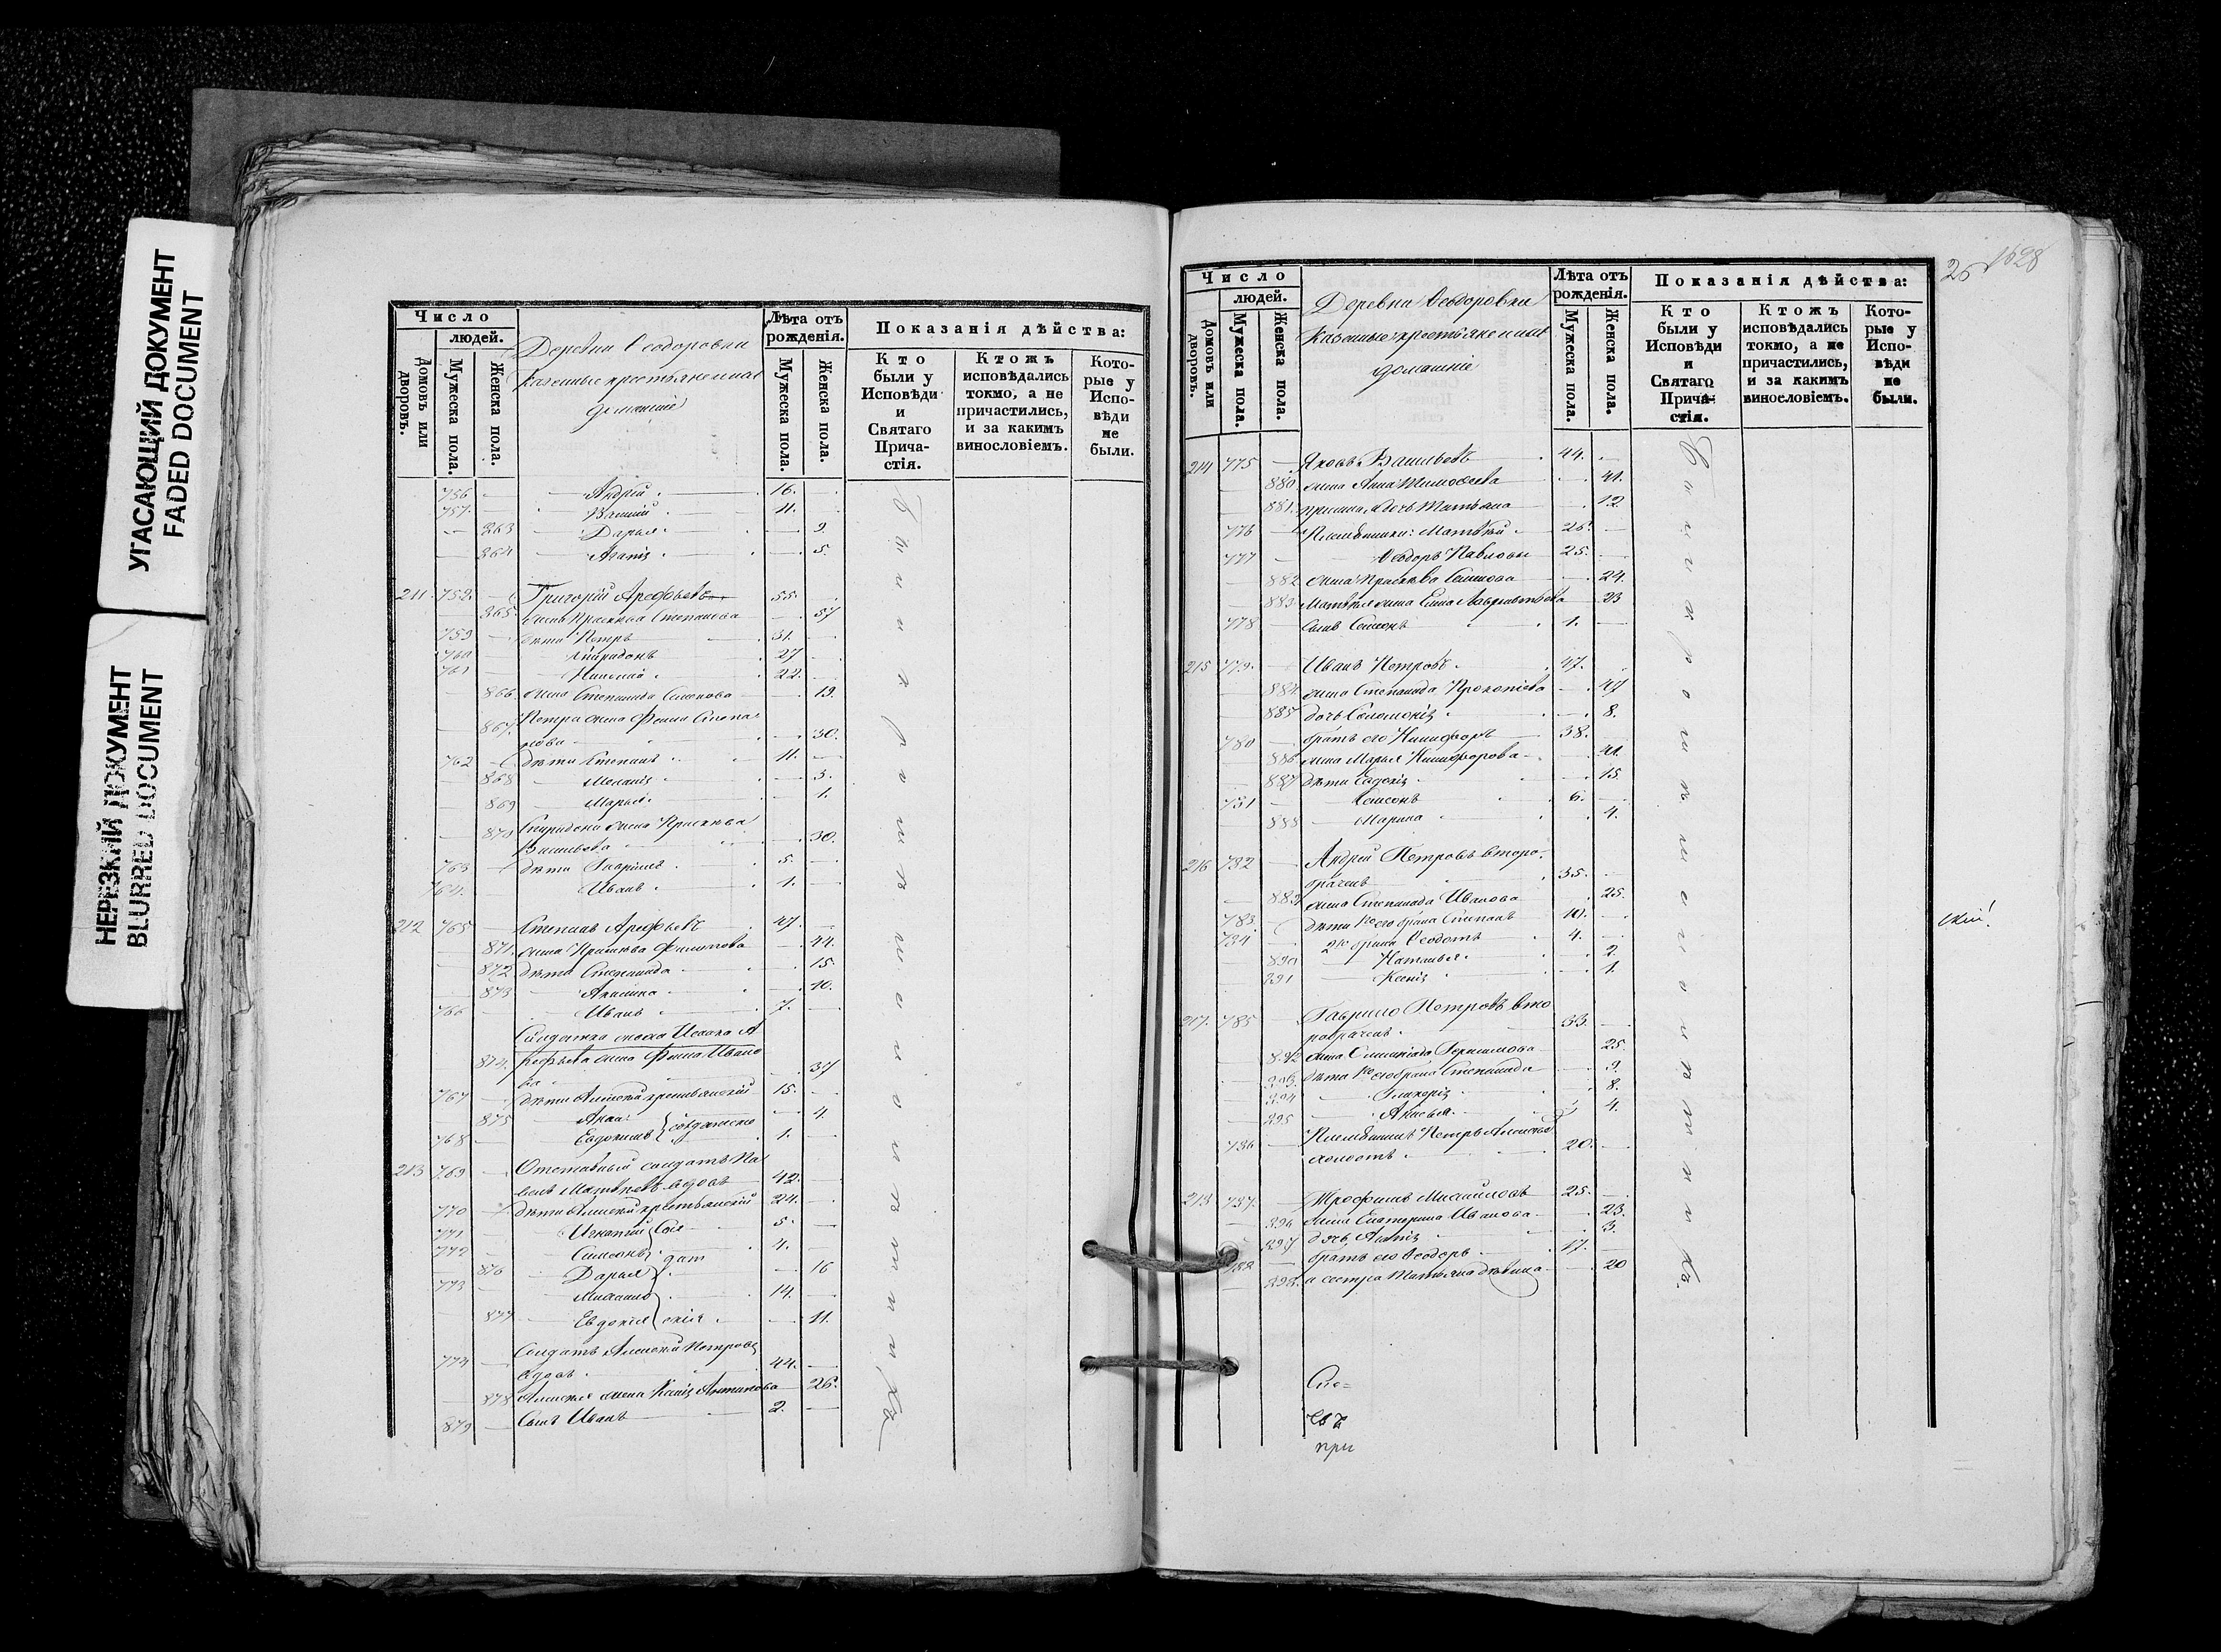 УГАСАЮЩИЙ ДОКУМЕНТ
FADED DOCUMENT
НЕРЕЗКИЙ ДОКУМЕНТ
BLURRED DOCUMENT
Число
людей.
Домовъ или дворовъ.
Мужеска пола.
Женска пола.
Деревни Ѳеодоровки
казенные крестьяне и их
домашніе
Лѣта отъ рожденія.
Мужеска пола.
Женска пола.
Показанія дѣйства:
Кто были у Исповѣди и Святаго Прича-стія.
Ктожъ исповѣдались токмо, а не причастились, и за какимъ винословіемъ.
Кото-рые у Испо-вѣди не были.
756 Андрей 16.
757. 11.
863 Дарья 9.
864 Агапія 5.
211 758. Григорій Арефьевъ 55.
865. жена Прасковья Степанова 57
759 дѣти Петръ 31.
760 Спиридонъ 27
761 Николай 22.
866. жена Степанида Семенова 19.
Петра жена Степа-
867. нова 30.
762 дѣти Степанъ 11.
868 Меланія 3.
869 Марья 1.
870 Спиридона жена Прасковья
Васильева 30.
763 дѣти Гавріилъ 5.
764. Иванъ 1.
212 765 Степанъ Арефьевъ 47.
871. жена Прасковья Филипова 44.
872 дѣти Степанида 15.
873 Акилина 10.
766 Иванъ 7.
Солдатка А
874. рефьева жена Ивано
ва 37
767 дѣти Алексѣй крестьянскій 15.
875 Анна 4.
768 Евдокимъ 1.
213 769 Отставный солдатъ Па
велъ Матвѣевъ вдовъ 42.
770 дѣти Алексѣй крестьянскій 24.
771 Игнатій 5.
772 Симеонъ 4.
Сол
дат
скія
876 Дарья 16
773 Михаилъ 14.
877 Евдокія 11.
774 Солдатъ Алексѣй Петровъ
вдовъ 44.
878 Алексѣя жена Ксенія Антипова 26.
879 сынъ Иванъ 2.
Были
26 1628
Число
людей.
Домовъ или дворовъ.
Мужеска пола.
Женска пола.
Деревни Ѳеодоровки
казенные крестьяне и их
домашніе
Лѣта отъ рожденія.
Мужеска пола.
Женска пола.
Показанія дѣйства:
Кто были у Исповѣди и Святаго Прича-стія.
Ктожъ исповѣдались токмо, а не причастились, и за какимъ винословіемъ.
Кото-рые у Испо-вѣди не были.
214 775 Яковъ Васильевъ 44.
880. жена Анна Тимоѳеева 41.
881. дочь Татьяна 12
776 Племянники: Матвѣй 26.
777 Ѳеодоръ Павловы 25.
882. жена Прасковья 24.
883. Матвѣя жена 23
778 сынъ Симеонъ 1.
215 779. Иванъ Петровъ 47.
884. жена Степанида Прокопіева 47
885 дочь Соломонія 8.
780 братъ его Никифоръ 38.
886. жена Марья Никифорова 41.
887 дѣти Евдокія 15.
781 Симеонъ 6.
888 Марина 4.
216 782 Андрей Петровъ второ-
браченъ 35.
889 жена Степанида Иванова 25.
783. дѣти 1го его брака Степанъ 10.
784 2го брака Ѳеодотъ 4.
890 Наталья 2.
891 Ксенія 1.
217. 785 Гаврило Петровъ вто
робраченъ 33.
892 жена Герасимова 25.
893. дѣти 1го его брака Степанида 9.
894 Гликерія 8.
895 Анисья 4.
786 Племянникъ Петръ Алексѣевъ
холостъ 20.
218 787. Трофимъ Михайловъ 25.
896 жена Екатерина Иванова 23.
897 дочь 3.
788 братъ его Ѳеодоръ 17.
898. и сестра Татьяна дѣвица 20
Были
при
скій!